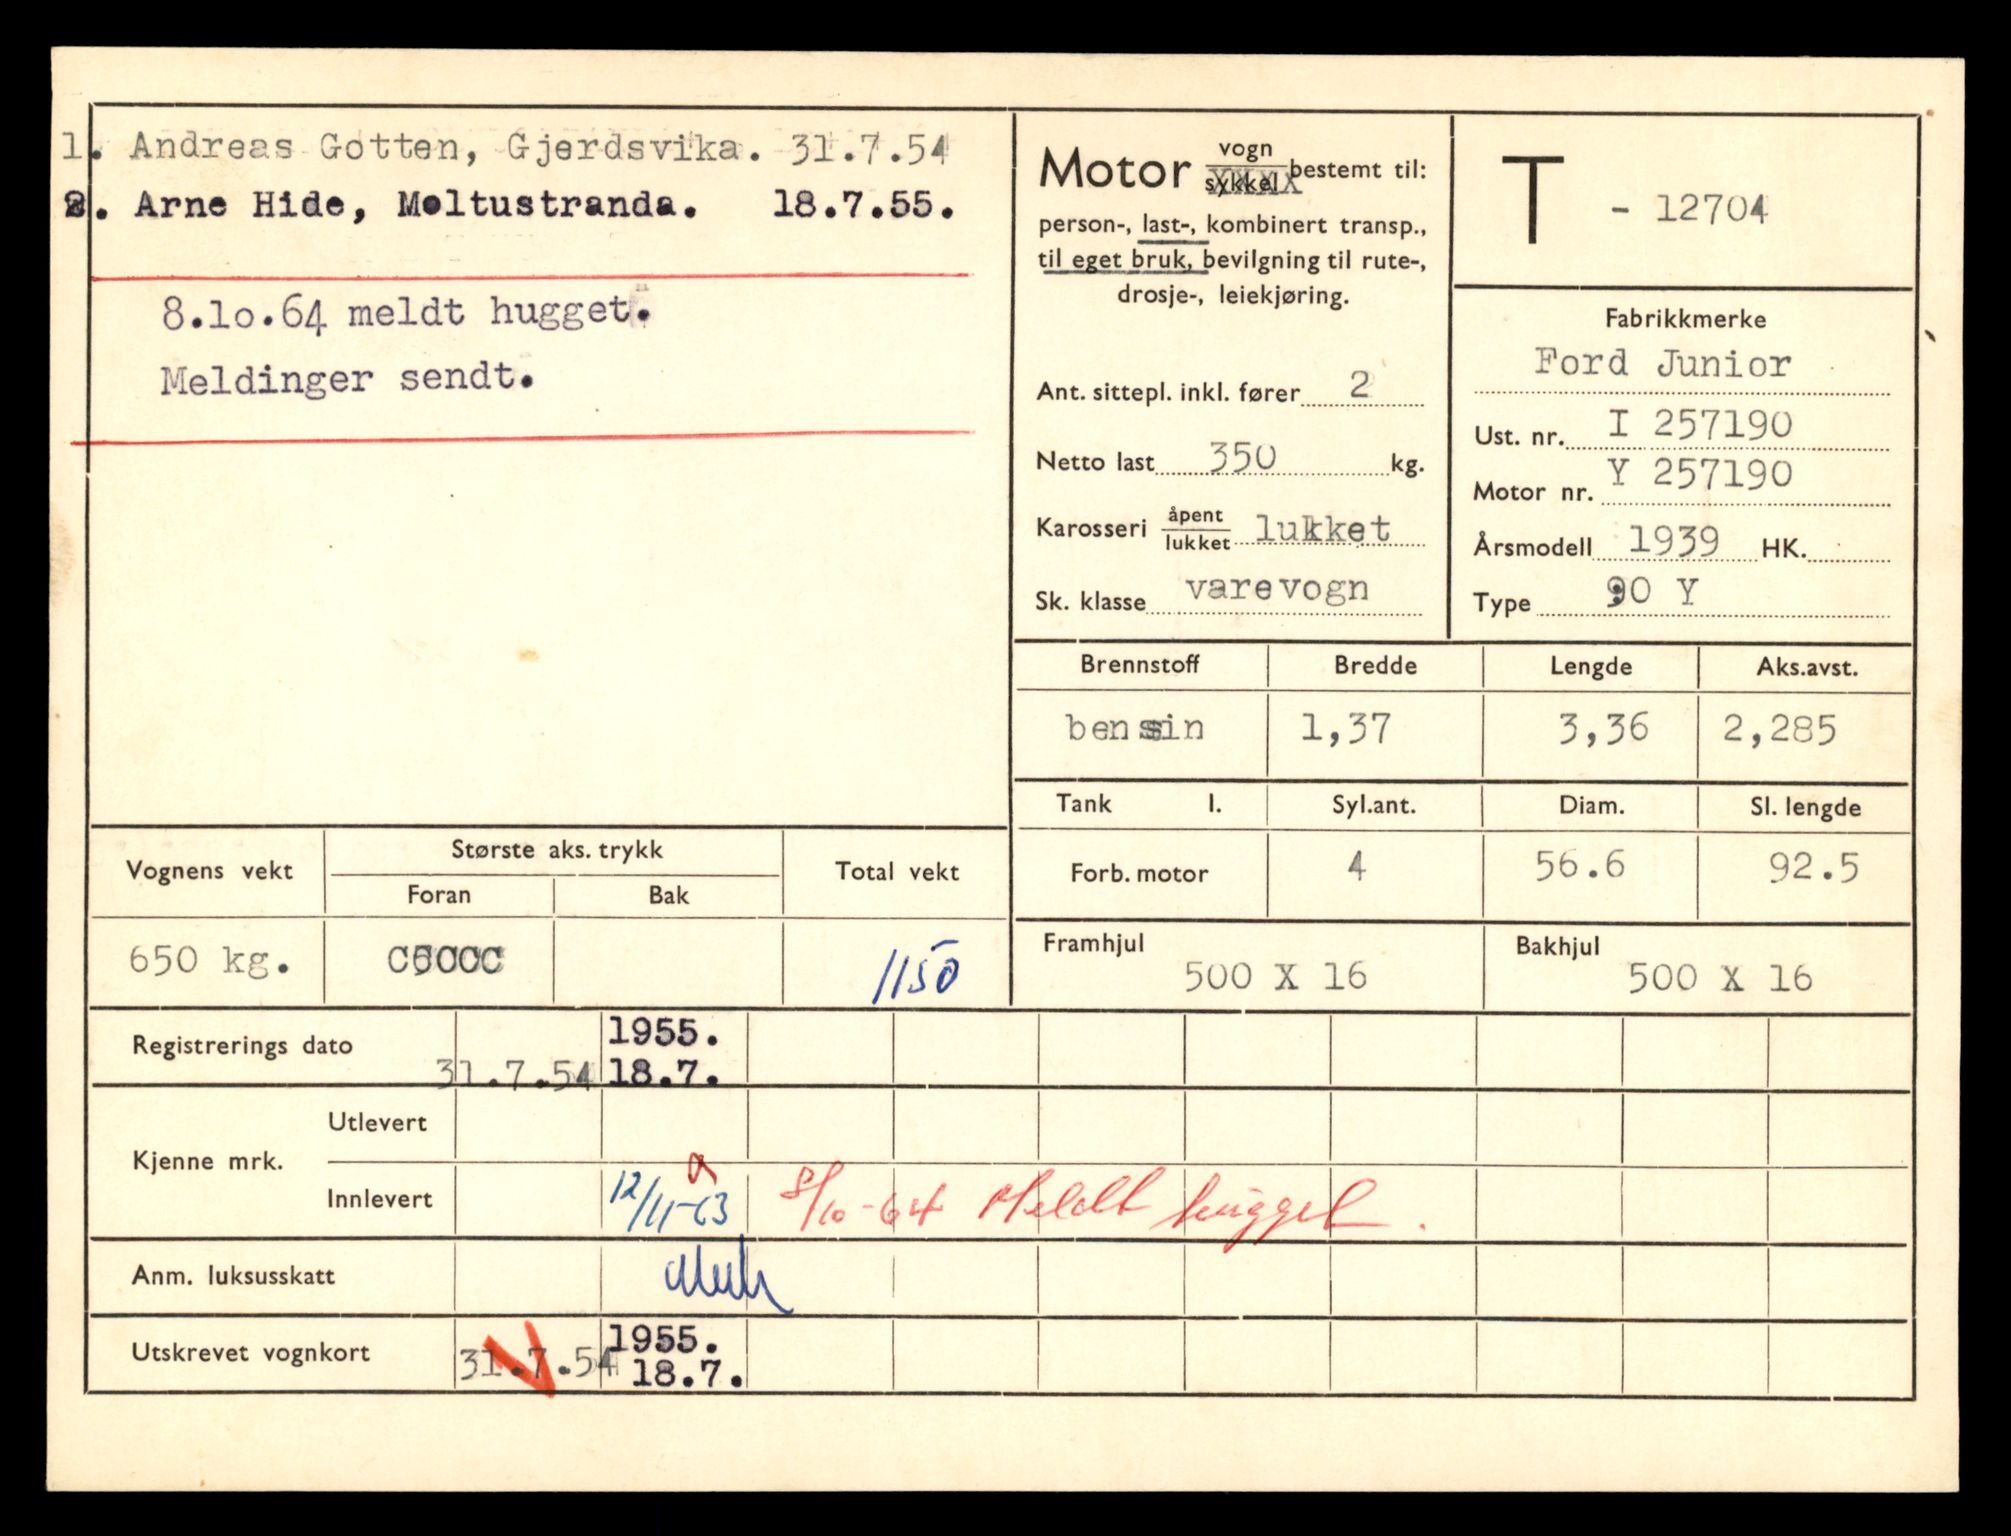 1. Andreas Gotten, Gjerdsvika. 31.7.54
2. Arne Hide, Moltustranda. 18.7.55.
8.lo.64 meldt hugget.
Meldinger sendt.
Motor vogn sykkel bestemt til:
person-, last-, kombinert transp.,
til eget bruk, bevilgning til rute-,
drosje-, leiekjøring.
Ant. sittepl. inkl. fører 2
Netto last 350 kg.
Karosseri åpent lukket lukket
Sk. klasse varevogn
T - 12704
Fabrikkmerke
Ford Junior
Ust. nr. I 257190
Motor nr. Y 257190
Årsmodell 1939 HK.
Type 90 Y
Brennstoff Bredde Lengde Aks.avst.
bensin 1,37 3,36 2,285
Tank l. Syl.ant. Diam. Sl. lengde
Forb. motor 4 56.6 92.5
Framhjul Bakhjul
500 X 16 500 X 16
Vognens vekt Største aks. trykk Total vekt
Foran Bak
650 kg. 1150
Registrerings dato 31.7.54 1955. 18.7.
Kjenne mrk.
Utlevert
Innlevert 12/11-63 8/10-64 Meldt hugget.
Anm. luksusskatt
Utskrevet vognkort 31.7.54 1955. 18.7.